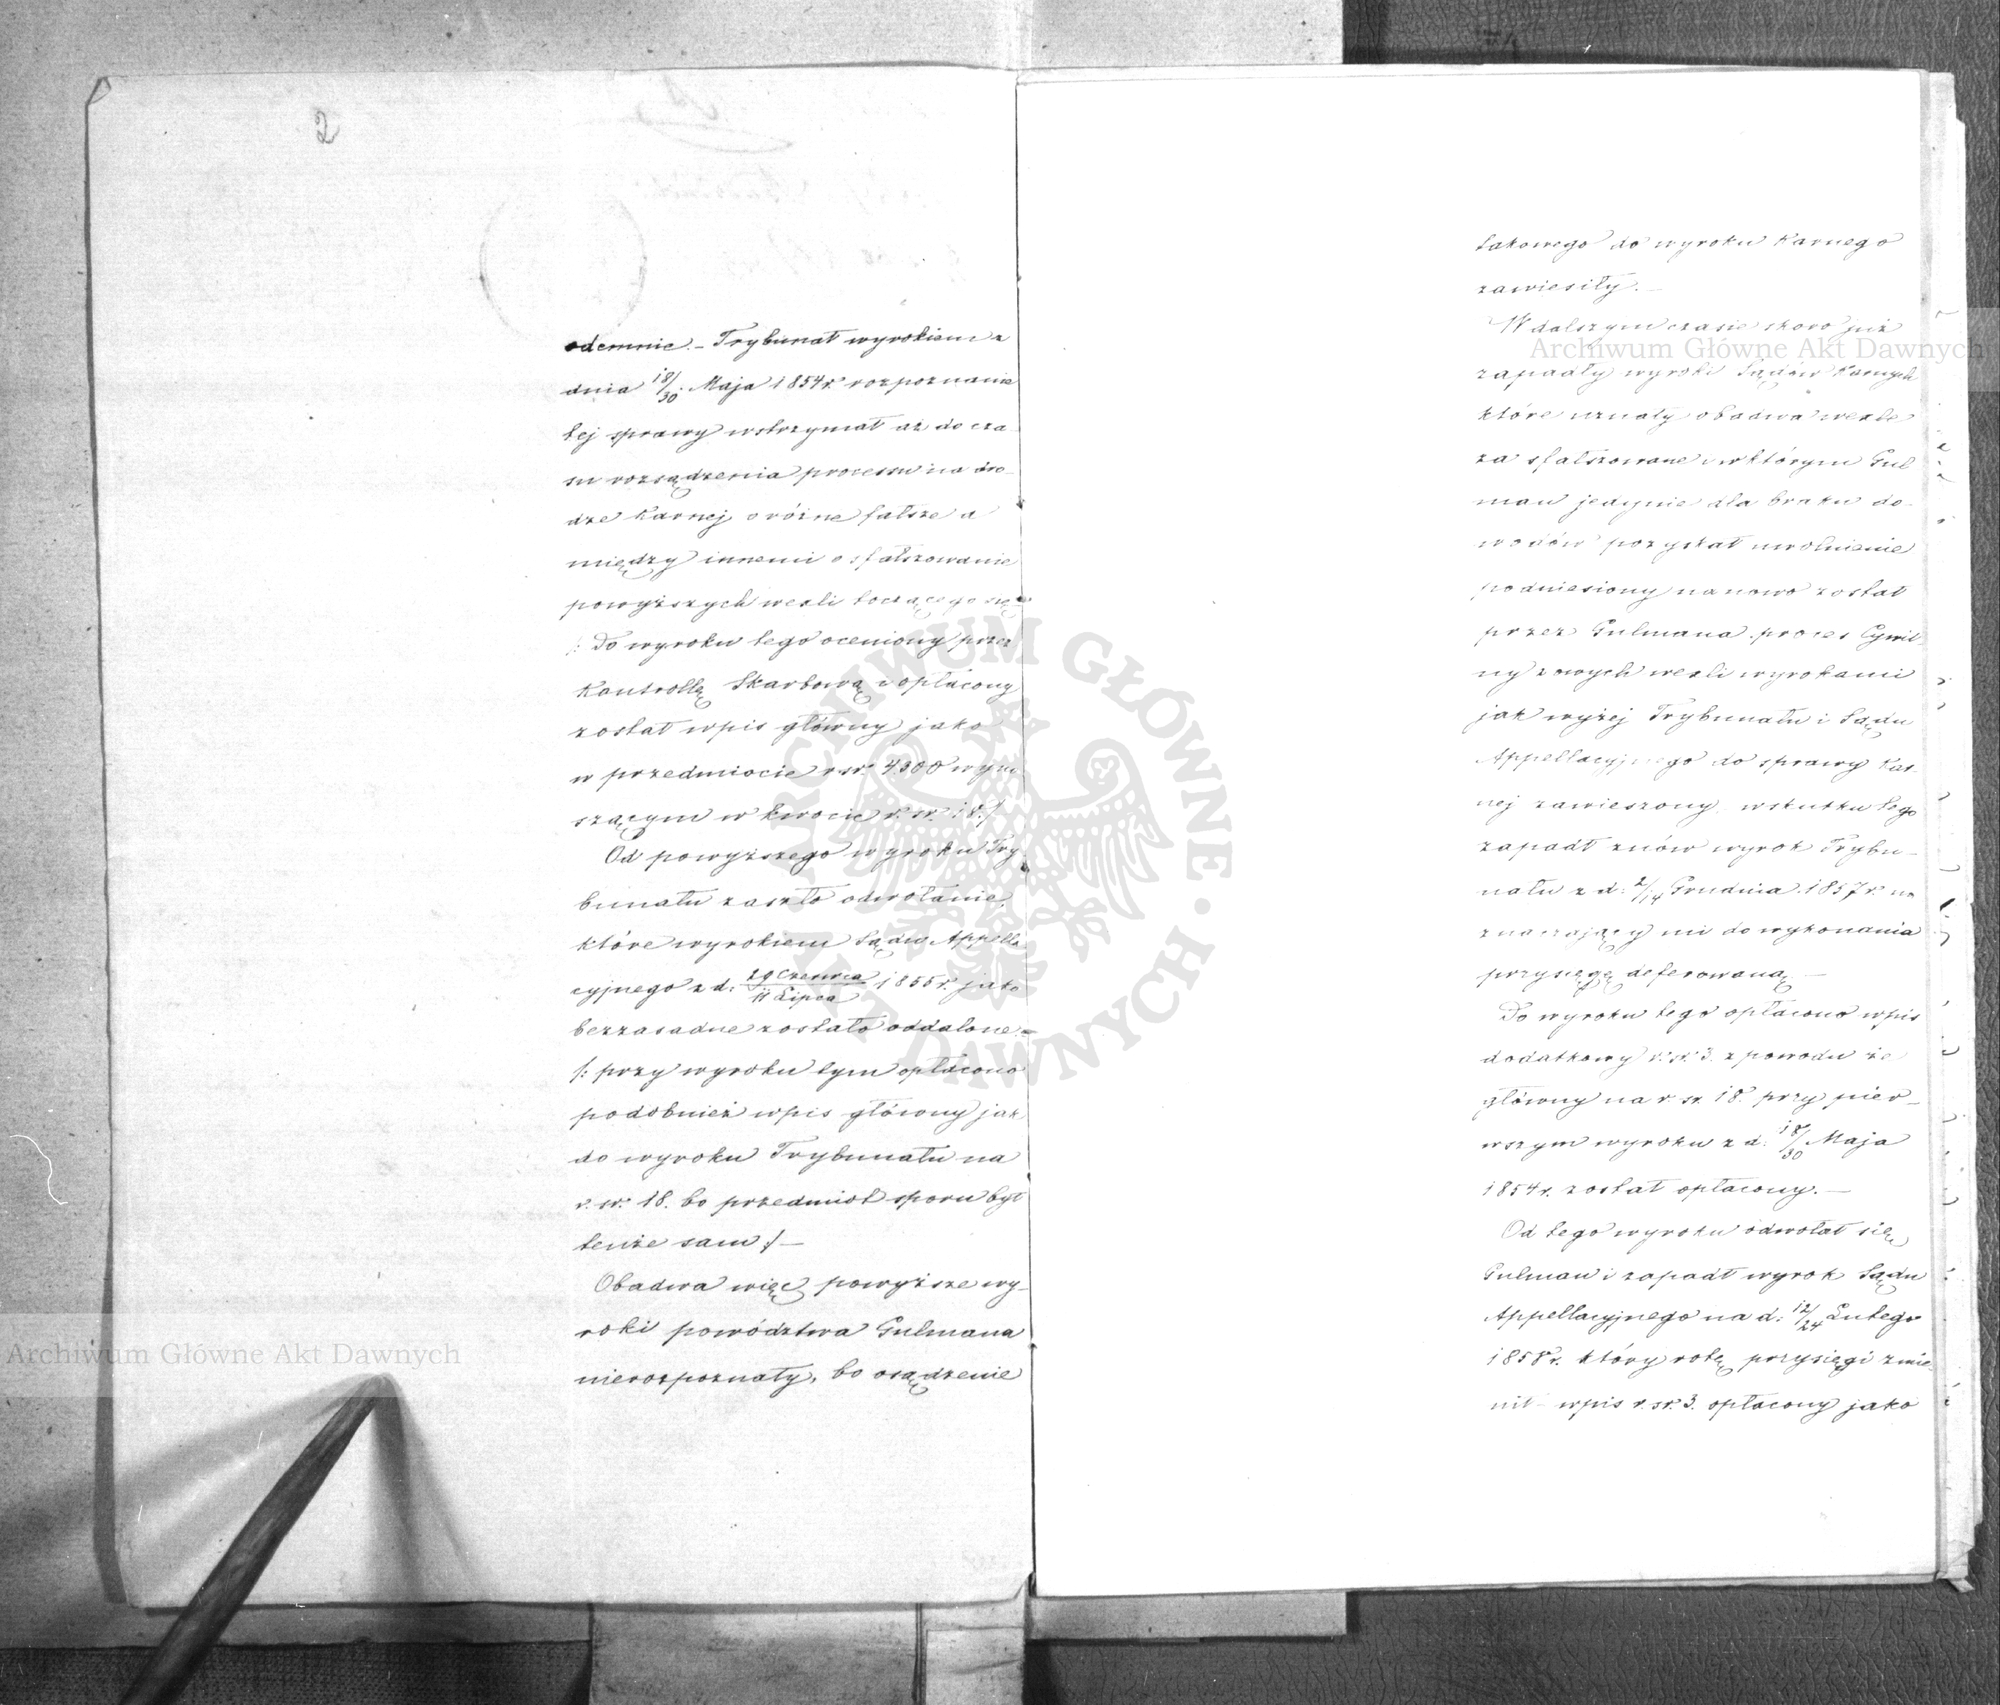 2
odemnie. – Trybunał wyrokiem z
dnia 18/30 Maja 1854 r. rozpoznanie
tej sprawy wstrzymał aż do cza
su rozsądzenia processu na dro
dze Karnej o różne fałsze a
między innemi o sfałszowanie
powyższych wexli toczącego się
/: Do wyroku tego oceniony przez
Kontrollę Skarbową i opłacony
został wpis główny jako
w przedmiocie r. sr. 4300 wyno
szącym w kwocie r. sr. 18. /
Od powyższego wyroku Try
bunału zaszło odwołanie,
które wyrokiem Sądu Appella
cyjnego z d: 29 Czerwca / 11 Lipca 1855 r. jako
bezzasadne zostało oddalone –
/: przy wyroku tym opłacono
podobnież wpis główny jak
do wyroku Trybunału na
r. sr. 18. bo przedmiot sporu był
tenże sam /–
Obadwa więc powyższe wy–
roki powództwa Gulmana
nierozpoznały, bo osądzenie
takowego do wyroku Karnego
zawiesiły. –
W dalszym czasie skoro już
zapadły wyroki Sądów Karnych
które uznały obadwa wexle
za sfałszowane i w którym Gul
man jedynie dla braku do–
wodów pozyskał uwolnienie
podniesiony na nowo został
przez Gulmana proces Cywil–
ny z owych wexli wyrokami
jak wyżej Trybunału i Sądu
Appellacyjnego do sprawy Kar–
nej zawieszony, wskutku tego
zapadł znów wyrok Trybu–
nału z d: 2/14 Grudnia 1857 r. na
znaczający mi do wykonania
przysięgę deferowaną –
Do wyroku tego opłacono wpis
dodatkowy r. sr. 3. z powodu że
główny na r. sr. 18. przy pier–
wszym wyroku z d. 18/30 Maja
1854 r. został opłacony. –
Od tego wyroku odwołał się
Gulman i zapadł wyrok Sądu
Appellacyjnego na d: 12/24 Lutego
1858 r. który rotę przysięgi zmie
nił – wpis r. sr. 3. opłacony jako
Archiwum Główne Akt Dawnych
Archiwum Główne Akt Dawnych
ARCHIWUM GŁÓWNE AKT DAWNYCH